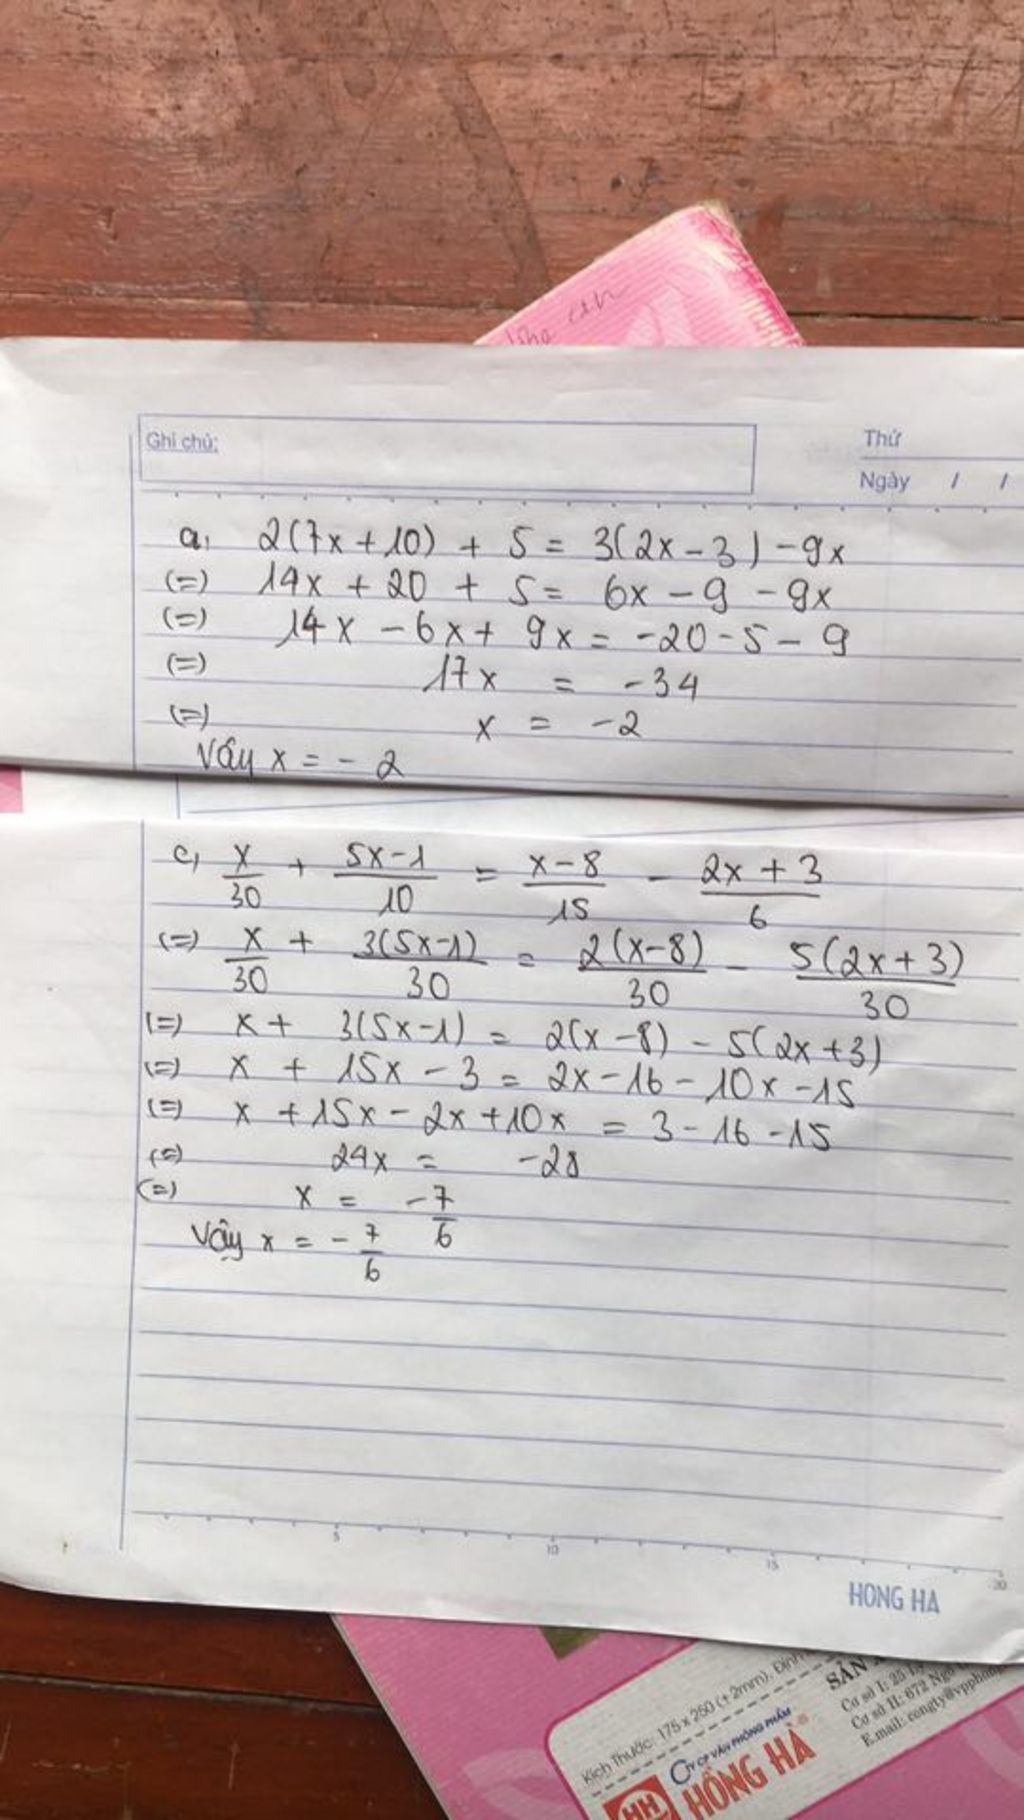 Ghi chú:
Thứ
Ngày / /
a, 2(7x+10) + 5 = 3(2x-3) - 9x
(=) 14x + 20 + 5 = 6x - 9 - 9x
(=) 14x - 6x + 9x = -20 - 5 - 9
(=) 17x = -34
(=) x = -2
Vậy x = - 2
c, x/30 + 5x-1/10 = x-8/15 - 2x+3/6
(=) x/30 + 3(5x-1)/30 = 2(x-8)/30 - 5(2x+3)/30
(=) x + 3(5x-1) = 2(x-8) - 5(2x+3)
(=) x + 15x - 3 = 2x - 16 - 10x - 15
(=) x + 15x - 2x + 10x = 3 - 16 - 15
(=) 24x = -28
(=) x = -7/6
Vậy x = -7/6
5 10 15 20
HONG HA
Kích Thước: 175 x 250 (±2mm). Định
CTY CP VĂN PHÒNG PHẨM
HH HỒNG HÀ
SẢN
Cơ sở I: 25
Cơ sở II: 672 Ngô
E.mail: congty@vpphong